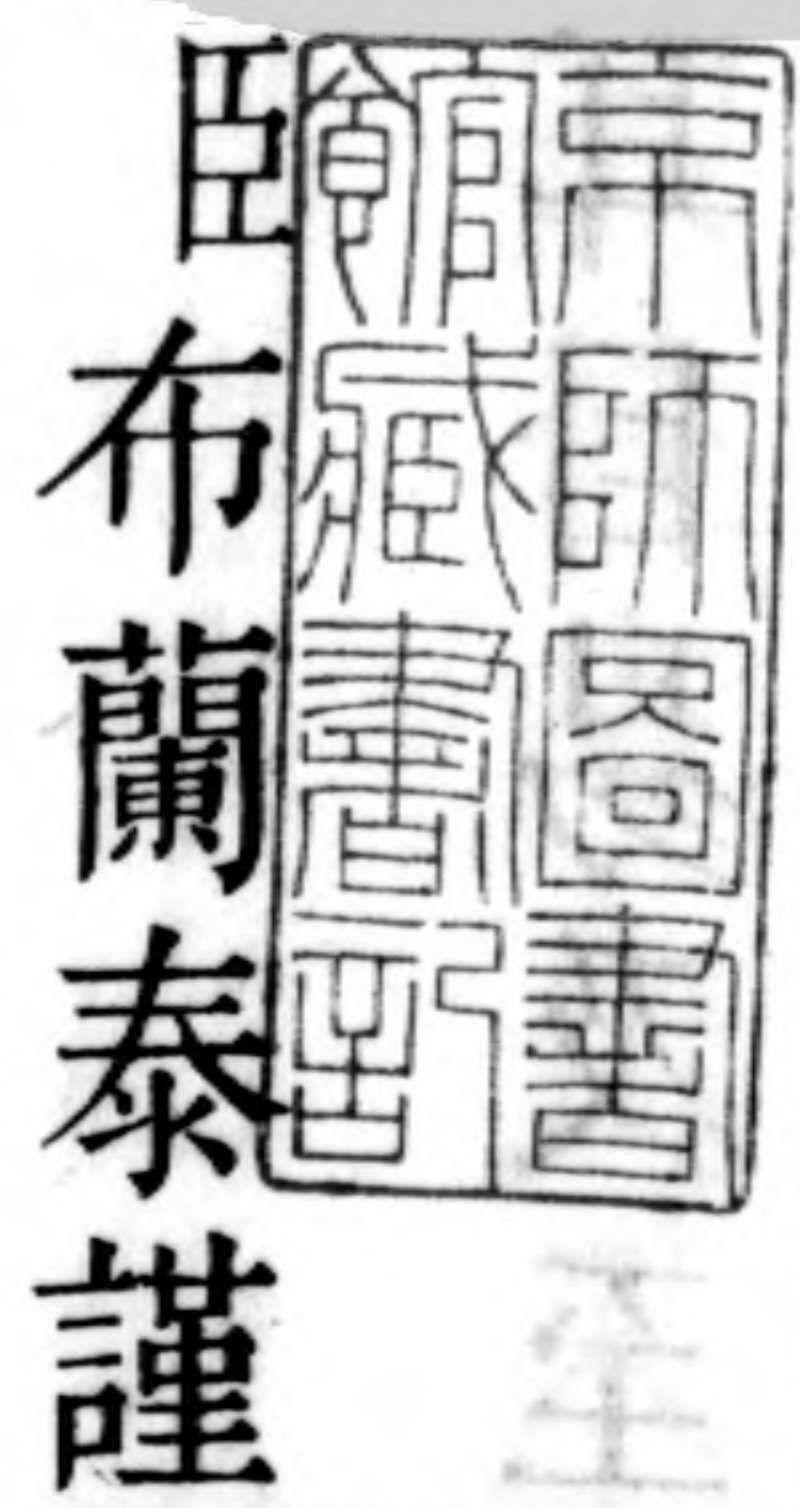 京師圖書
館藏書記
臣布蘭泰謹